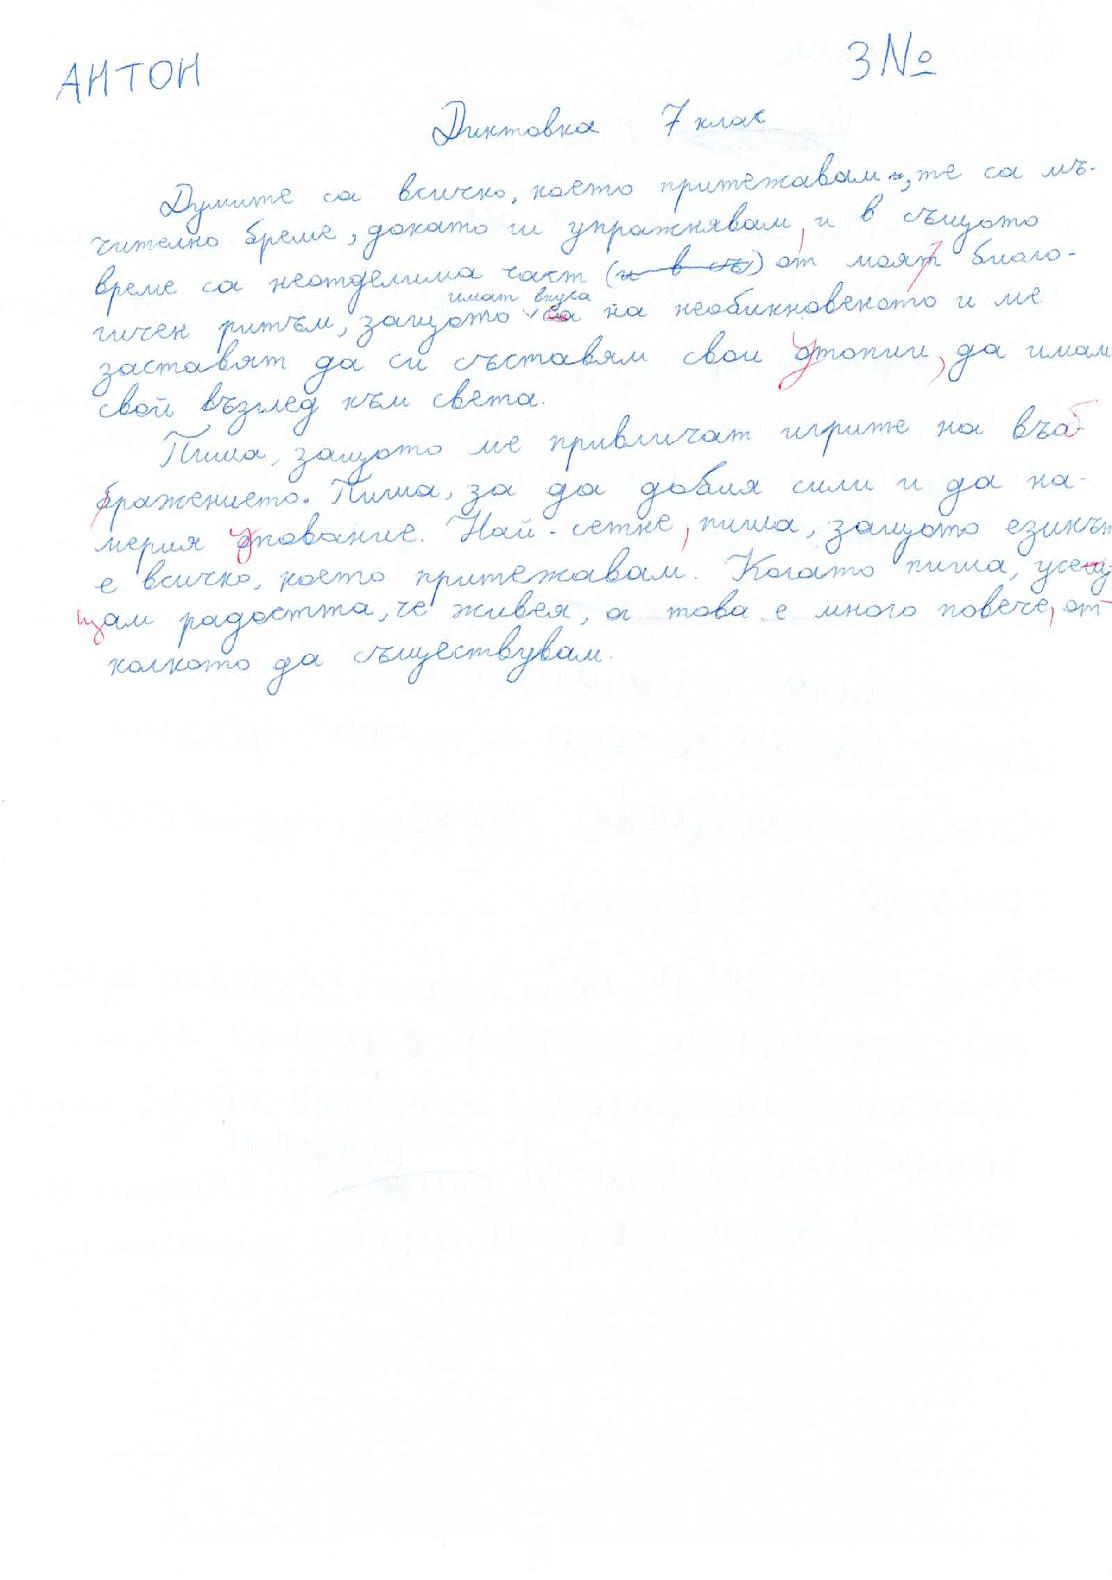 АНТОН
3 №
Диктовка 7 клас
Думите са всичко, което притежавам, те са мъ-
чително бреме, докато ги упражнявам, и в същото
време са неотделима част (и в съ) от моят биоло-
имат вкуса
гичен ритъм, защото са на необикновеното и ме
заставят да си съставям свои утопии, да имам
свой възглед към света.
Пиша, защото ме привличат игрите на въоб
бражението. Пиша, за да добия сили и да на-
меря упование. Най-сетне, пиша, защото езикът
е всичко, което притежавам. Когато пиша, усещ
щам радостта, че живея, а това е много повече, от-
колкото да съществувам.